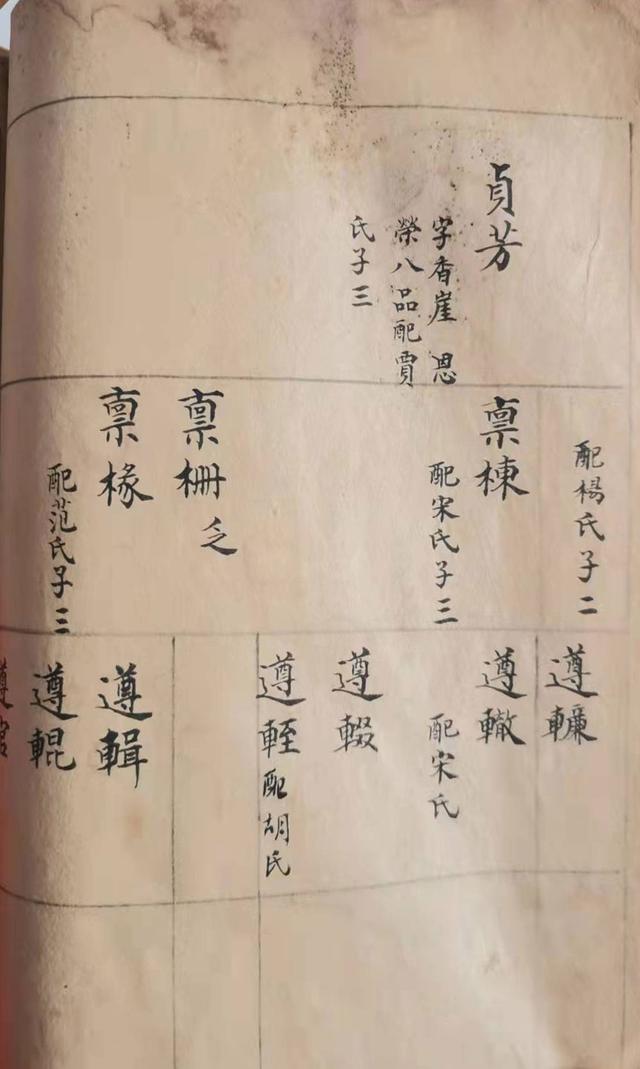 貞芳
字香崖 恩
榮八品配賈
氏子三
配楊氏子二
禀棟
配宋氏子三
禀栅
乏
禀椽
配范氏子三
遵轍
配宋氏
遵輟
遵輊配胡氏
遵輯
遵輥